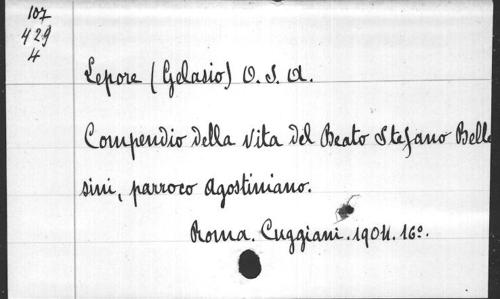 107
429
4
Lepore (Gelasio) O. S. A.
Compendio della vita del Beato Stefano Belle
sini, parroco Agostiniano.
Roma. Cuggiani. 1904. 16º.